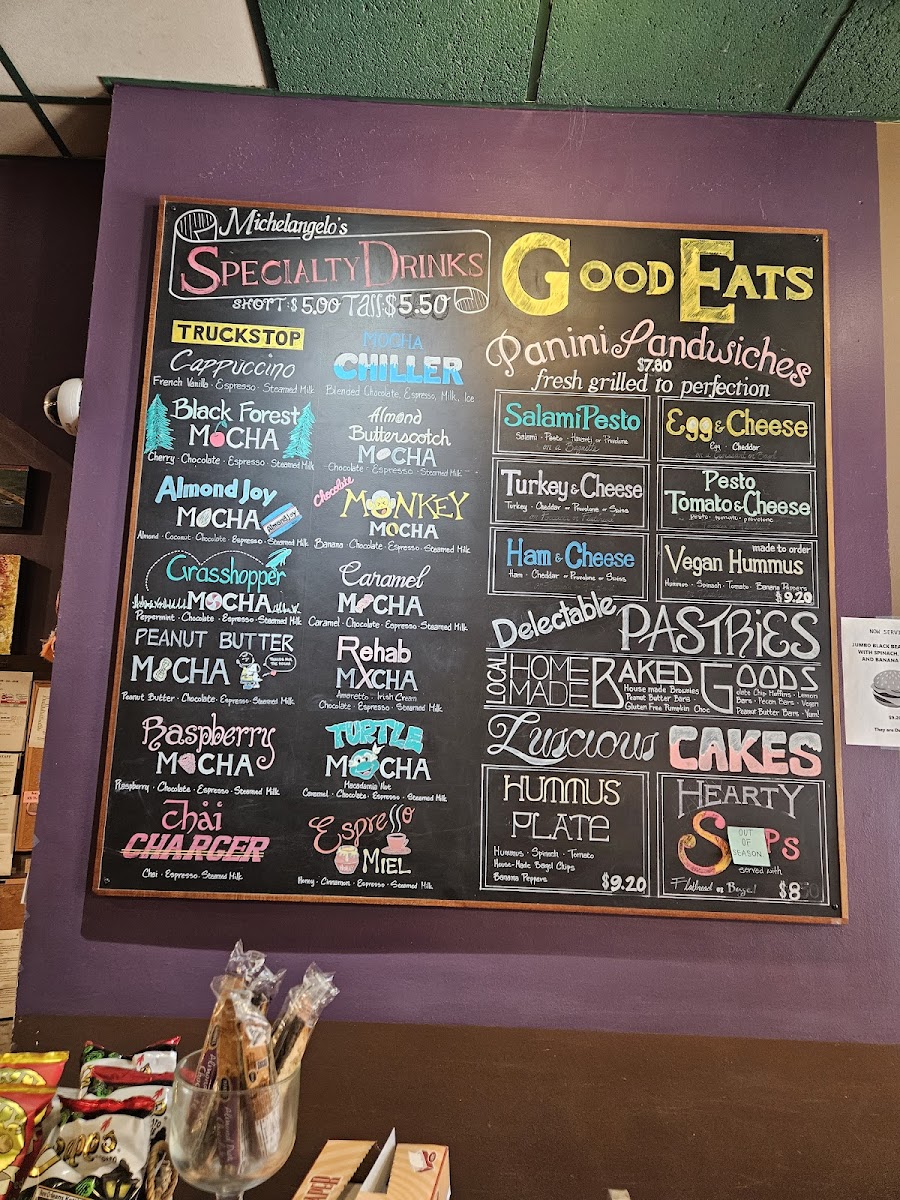 Michelangelo's
SPECIALTY DRINKS
SHORT·$5.00 Tall·$5.50
TRUCKSTOP
Cappuccino
French Vanilla · Espresso · Steamed Milk
Black Forest
MOCHA
Cherry · Chocolate · Espresso · Steamed Milk
Almond Joy
MOCHA
Almond · Coconut · Chocolate · Espresso · Steamed Milk
Grasshopper
MOCHA
Peppermint · Chocolate · Espresso · Steamed Milk
PEANUT BUTTER
MOCHA
Peanut Butter · Chocolate · Espresso · Steamed Milk
Raspberry
MOCHA
Raspberry · Chocolate · Espresso · Steamed Milk
Chai
CHARGER
Chai · Espresso · Steamed Milk
MOCHA
CHILLER
Blended Chocolate, Espresso, Milk, Ice
Almond
Butterscotch
MOCHA
Chocolate · Espresso · Steamed Milk
Chocolate
MONKEY
MOCHA
Banana · Chocolate · Espresso · Steamed Milk
Caramel
MOCHA
Caramel · Chocolate · Espresso · Steamed Milk
Rehab
MOCHA
Amaretto · Irish Cream
Chocolate · Espresso · Steamed Milk
TURTLE
MOCHA
Macadamia Nut
Caramel · Chocolate · Espresso · Steamed Milk
Espresso
MIEL
Honey · Cinnamon · Espresso · Steamed Milk
GOOD EATS
Panini Sandwiches
$7.80
fresh grilled to perfection
Salami Pesto
Salami · Pesto · Havarti or Provolone
on a Baguette
Egg & Cheese
Egg · Cheddar
Turkey & Cheese
Turkey · Cheddar or Provolone or Swiss
Pesto
Tomato & Cheese
Pesto · tomato · provolone
Ham & Cheese
Ham · Cheddar or Provolone or Swiss
made to order
Vegan Hummus
Hummus · Spinach · Tomato · Banana Peppers
$9.20
Delectable PASTRIES
LOCAL HOME MADE BAKED GOODS
House made Brownies
Peanut Butter Bars
Gluten Free Pumpkin Choc
olate Chip Muffins · Lemon
Bars · Pecan Bars · Vegan
Peanut Butter Bars · Yum!
Luscious CAKES
HUMMUS
PLATE
Hummus · Spinach · Tomato
House-Made Bagel Chips
Banana Peppers
$9.20
HEARTY
OUT
OF
SEASON
served with
Flatbread or Bagel
$8
NOW SERVI
JUMBO BLACK BEA
WITH SPINACH,
AND BANANA
$9.2
Zapp's